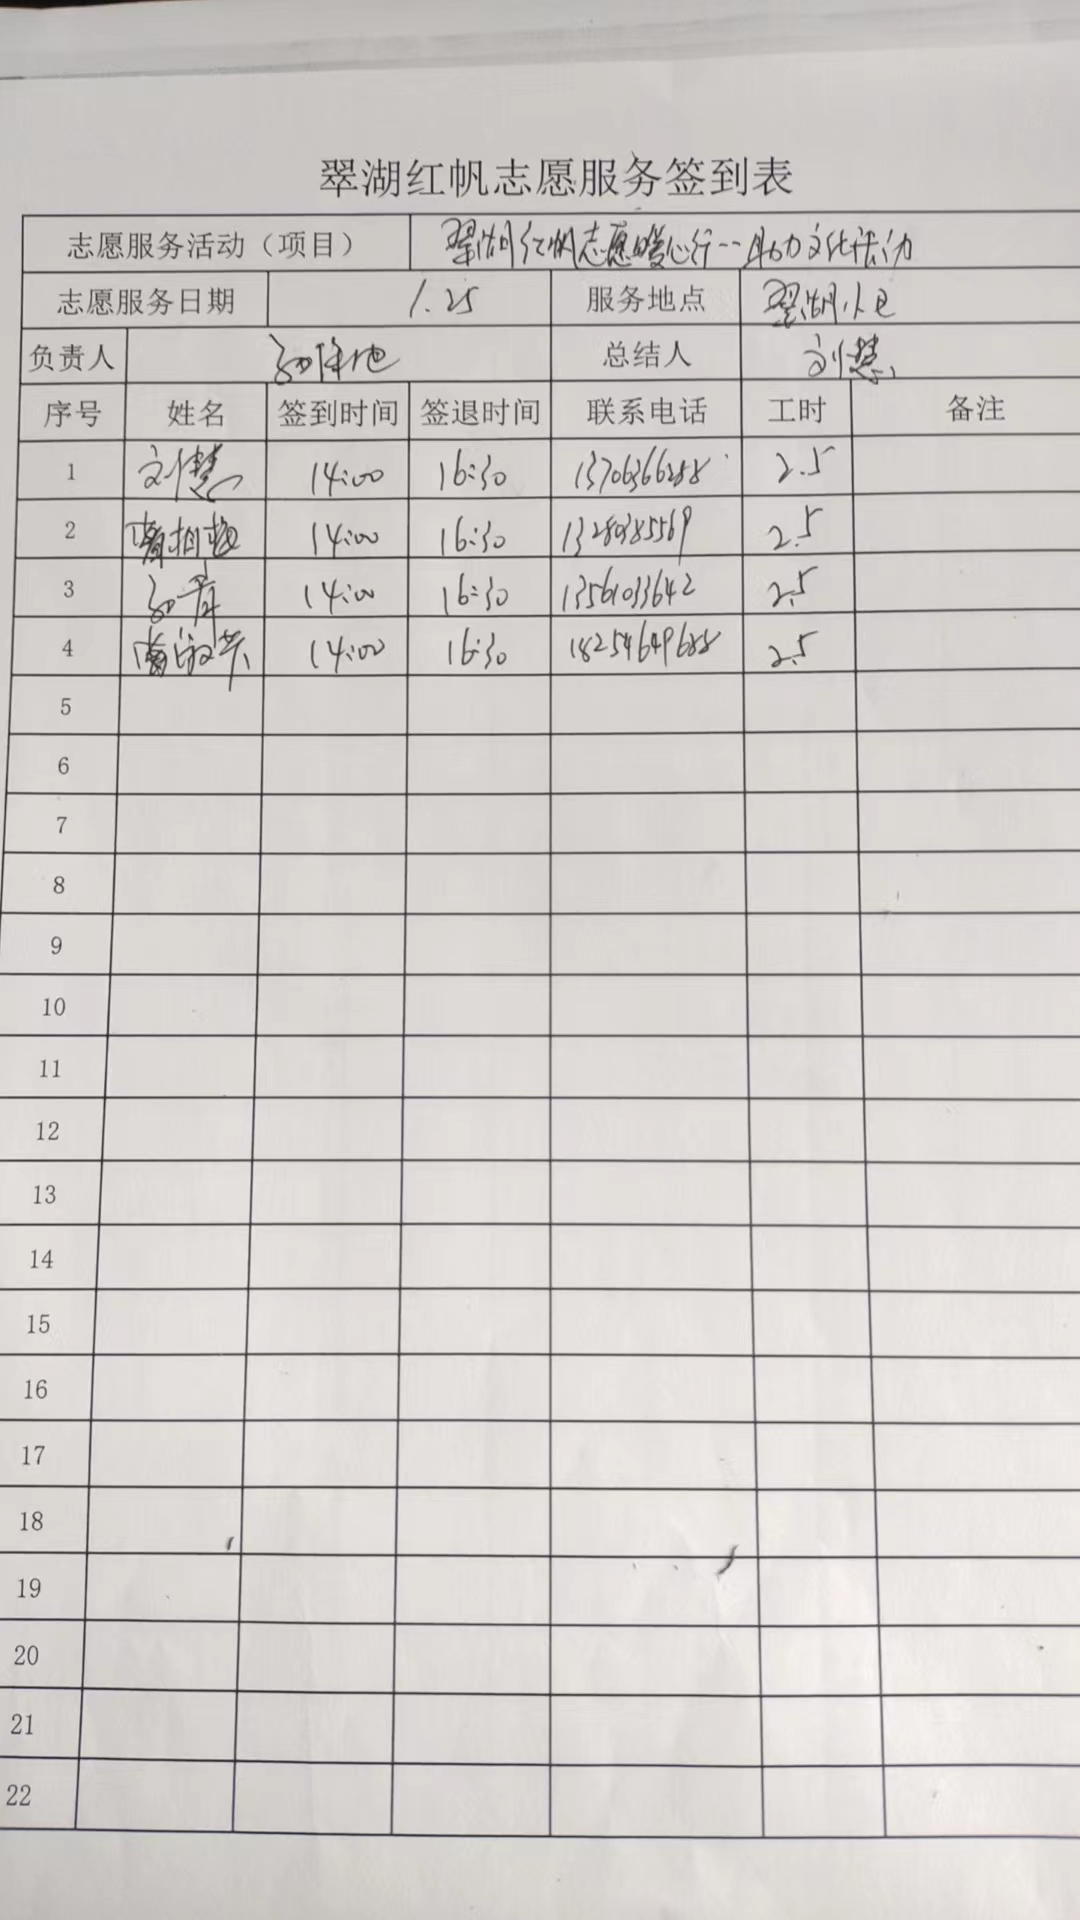 翠湖红帆志愿服务签到表
志愿服务活动（项目） 翠湖红帆志愿暖心行--助力文化活动
志愿服务日期 1.25 服务地点 翠湖小区
负责人 总结人 刘慧
序号 姓名 签到时间 签退时间 联系电话 工时 备注
1 刘慧 14:00 16:30 13706366288 2.5
2 14:00 16:30 13280385569 2.5
3 14:00 16:30 13561033642 2.5
4 14:00 16:30 18254649688 2.5
5
6
7
8
9
10
11
12
13
14
15
16
17
18
19
20
21
22